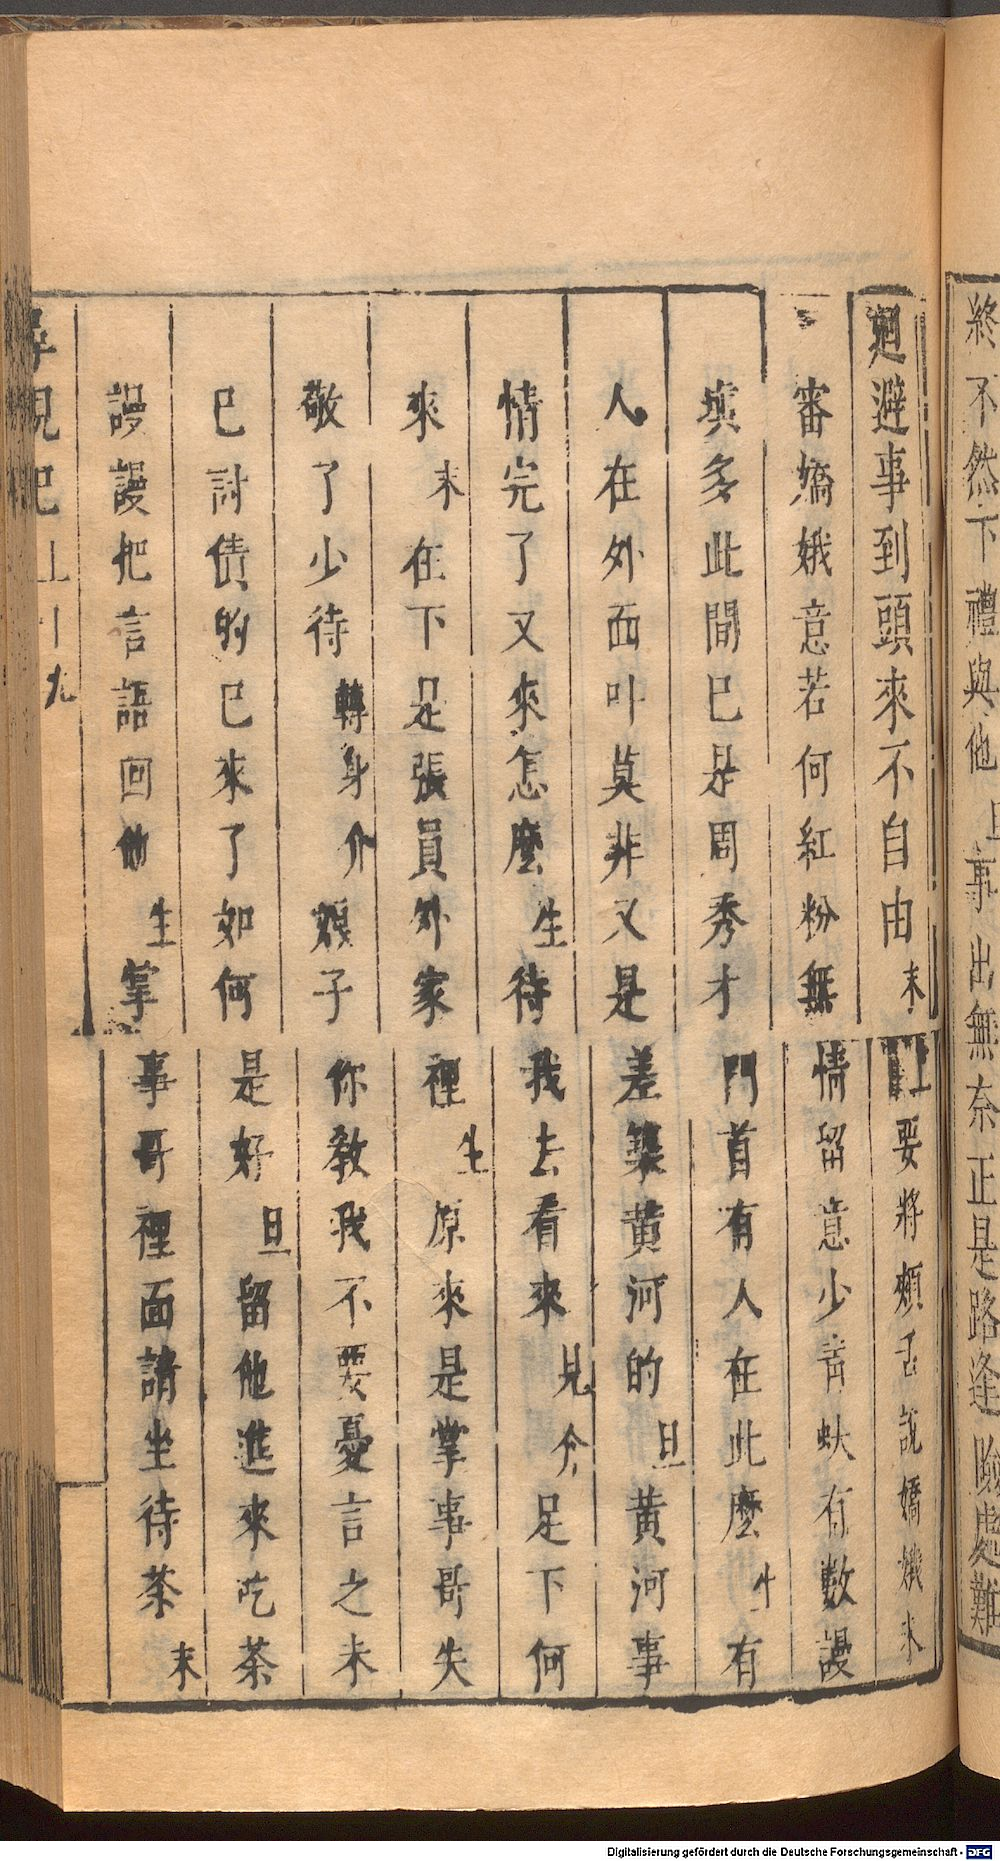 終不然下禮與他 旦 事出無奈正是路逢險處難
迴避事到頭來不自由 末 要將頰舌說嬌娥未
審嬌娥意若何紅粉無情留意少青蚨有數謾
填多此間已是周秀才門首有人在此麼 有
人在外面叫莫非又是差築黃河的 旦 黃河事
情完了又來怎麼 生 待我去看來 見介 足下何
來 末 在下是張員外家裡 生 原來是掌事哥失
敬了少待 轉身介 娘子你教我不要憂言之未
已討債的已來了如何是好 旦 留他進來吃茶
謾謾把言語回他 生 掌事哥裡面請坐待茶 末
尋親記 上 十九
Digitalisierung gefördert durch die Deutsche Forschungsgemeinschaft - DFG